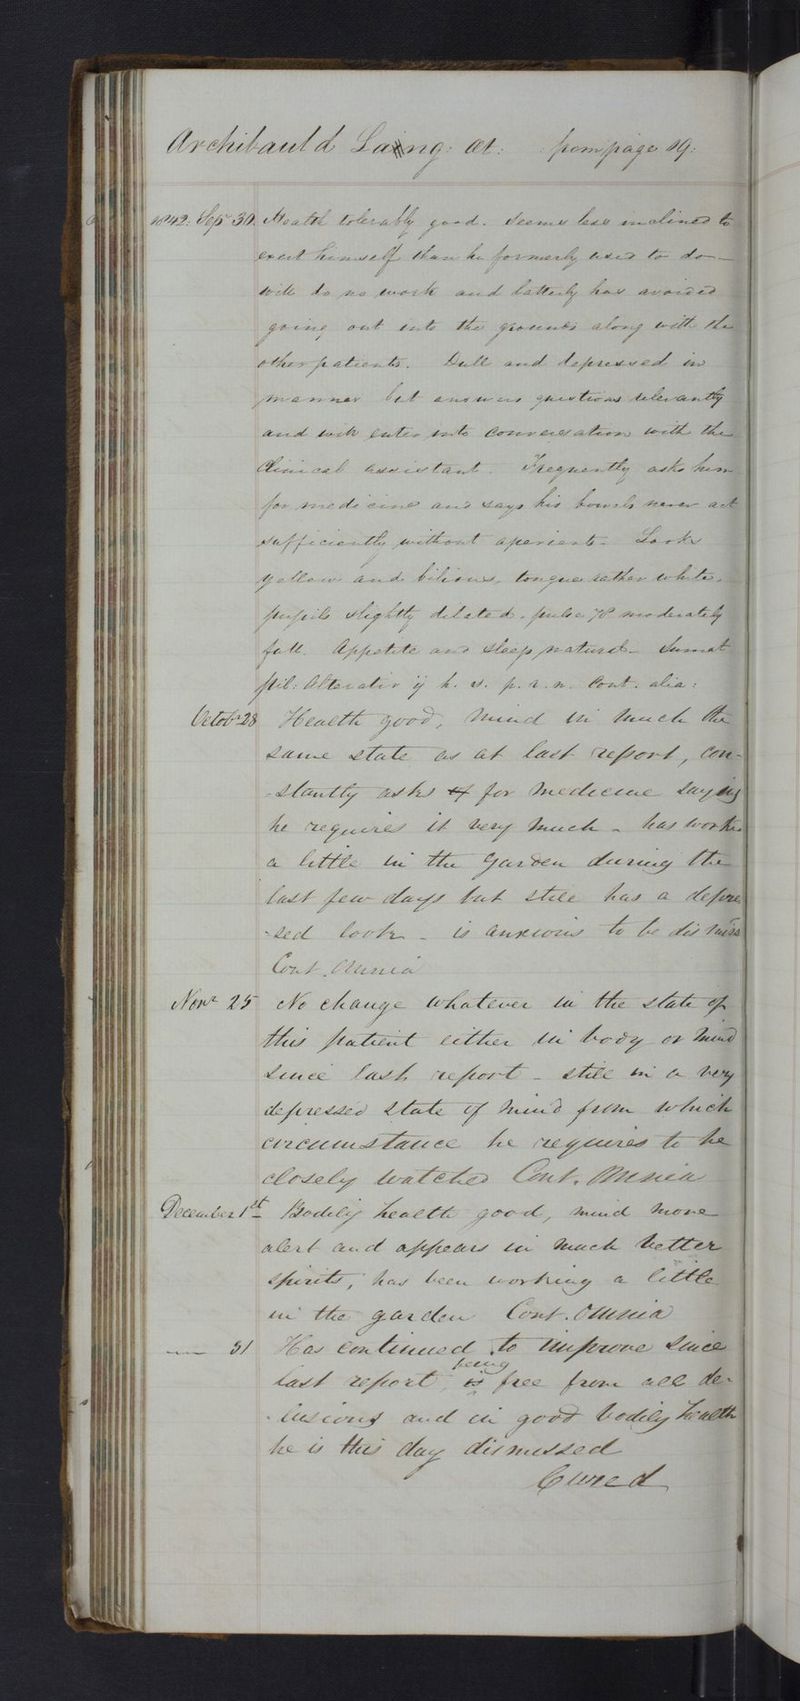 Archibauld Laing: aet: from page 19:
1842: Sepr 30. Health tolerably good. Seems less inclined to
exert himself than he formerly used to do –
will do no work and latterly has avoided
going out into the grounds along with the
other patients. Dull and depressed in
manner but answers questions relevantly
and will enter into conversation with the
Clinical assistant. Frequently asks him
for medicine and says his bowels never act
sufficiently without aperients. Looks
yellow and bilious, tongue rather white,
pupils slightly dilated, pulse 78 moderately
full. Appetite and sleep natural – Sumat
pil: Alterativ ij h. s. p. r. n. Cont. alia:
Octobr 28 Health good, mind in much the
same state as at last report, con-
-stantly asks for medicine saying
he requires it very much – has worked
a little in the garden during the
last few days but still has a depres
-sed look – is anxious to be dismiss
Cont. Omnia
Novr 25 No change whatever in the state of
this patient either in body or mind
since last report – still in a very
depressed state of mind from which
circumstance he requires to be
closely watched Cont. Omnia
December 1st Bodily health good, mind more
alert and appears in much better
spirits, has been working a little
in the garden Cont. Omnia
— 31 Has continued to improve since
last report, being free from all de-
-lusions and in good bodily health
he is this day dismissed
Cured